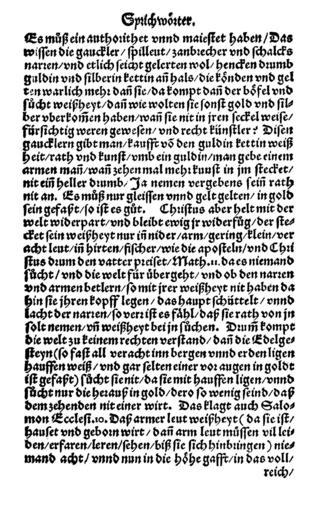 Sprichwörter.
Es můß ein authorithet vnnd maiestet haben / Das
wissen die gauckler / spilleut / zanbrecher vnd schalcks
narren / vnd etlich seicht gelerten wol / hencken drumb
guldin vnd silberin kettin añ hals / die könden vnd gel
ten warlich mehr dañ sie / da kompt dañ der böfel vnd
sůcht weißheyt / dañ wie wolten sie sonst gold vnd sil-
ber vberkom̃en haben / wañ sie nit in jren seckel weise /
fürsichtig weren gewesen / vnd recht künstler? Disen
gaucklern gibt man / kaufft võ den guldin kettin weiß
heit / rath vnd kunst / vmb ein guldin / man gebe einem
armen mañ / wañ zehen mal mehr kunst in jm stecket /
nit eiñ heller drumb / Ja nemen vergebens sein rath
nit an. Es můß nur gleissen vnnd gelt gelten / in gold
sein gefaßt / so ist es gůt. Christus aber helt mit der
welt widerpart / vnd bleibt ewig jr widerfüg / der ste-
cket sein weißheyt nur in nider / arm / gering / klein / ver
acht leut / in hirten / fischer / wie die aposteln / vnd Chri
stus drum den vatter preiset / Math.11. da es niemand
sůcht / vnd die welt für übergeht / vnd ob den narren
vnd armen betlern / so mit jrer weißheyt nit haben da
hin sie jhren kopff legen / das haupt schüttelt / vnnd
lacht der narren / so verr ist es fähl / daß sie rath von jn
solt nemen / vñ weißheyt bei jn sůchen. Drum̃ kompt
die welt zu keinem rechten verstand / dañ die Edelge-
steyn (so fast all veracht inn bergen vnnd erden ligen
hauffen weiß / vnd gar selten einer vor augen in goldt
ist gefaßt) sůcht sie nit / da sie mit hauffen ligen / vnnd
sůcht nur die herauß in gold / dero so wenig seind / daß
dem zehenden nit einer wirt. Das klagt auch Salo-
mon Ecclesi.10. Daß armer leut weißheyt (da sie ist /
hauset vnd geborn wirt / dañ arm leut müssen vil lei-
den / erfaren / leren / sehen / biß sie sich hinbringen) nie-
mand acht / vnnd nun in die höhe gafft / in das voll /
reich /